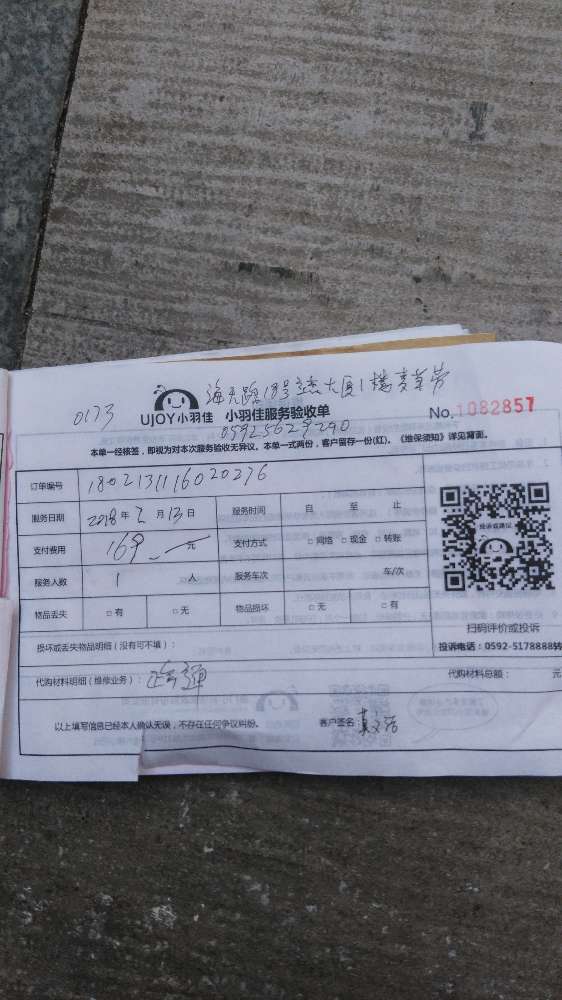 海天路18号 大厦1楼麦当劳
0173
UJOY小羽佳 小羽佳服务验收单 No.1082857
05925629290
本单一经核签，即视为对本次服务验收无异议。本单一式两份，客户留存一份(红)。《维保须知》详见背面。
订单编号 1802131116020276
服务日期 2018年2月13日 服务时间 自 至 止
支付费用 169 元 支付方式 □网络 □现金 □转账
服务人数 1 人 服务车次 车/次
物品丢失 □有 □无 物品损坏 □无 □有
投诉或建议
扫码评价或投诉
损坏或丢失物品明细（没有可不填）：
投诉电话：0592-5178888转
代购材料明细（维修业务）： 疏通 代购材料总额： 元
以上填写信息已经本人确认无误，不存在任何争议纠纷。 客户签名